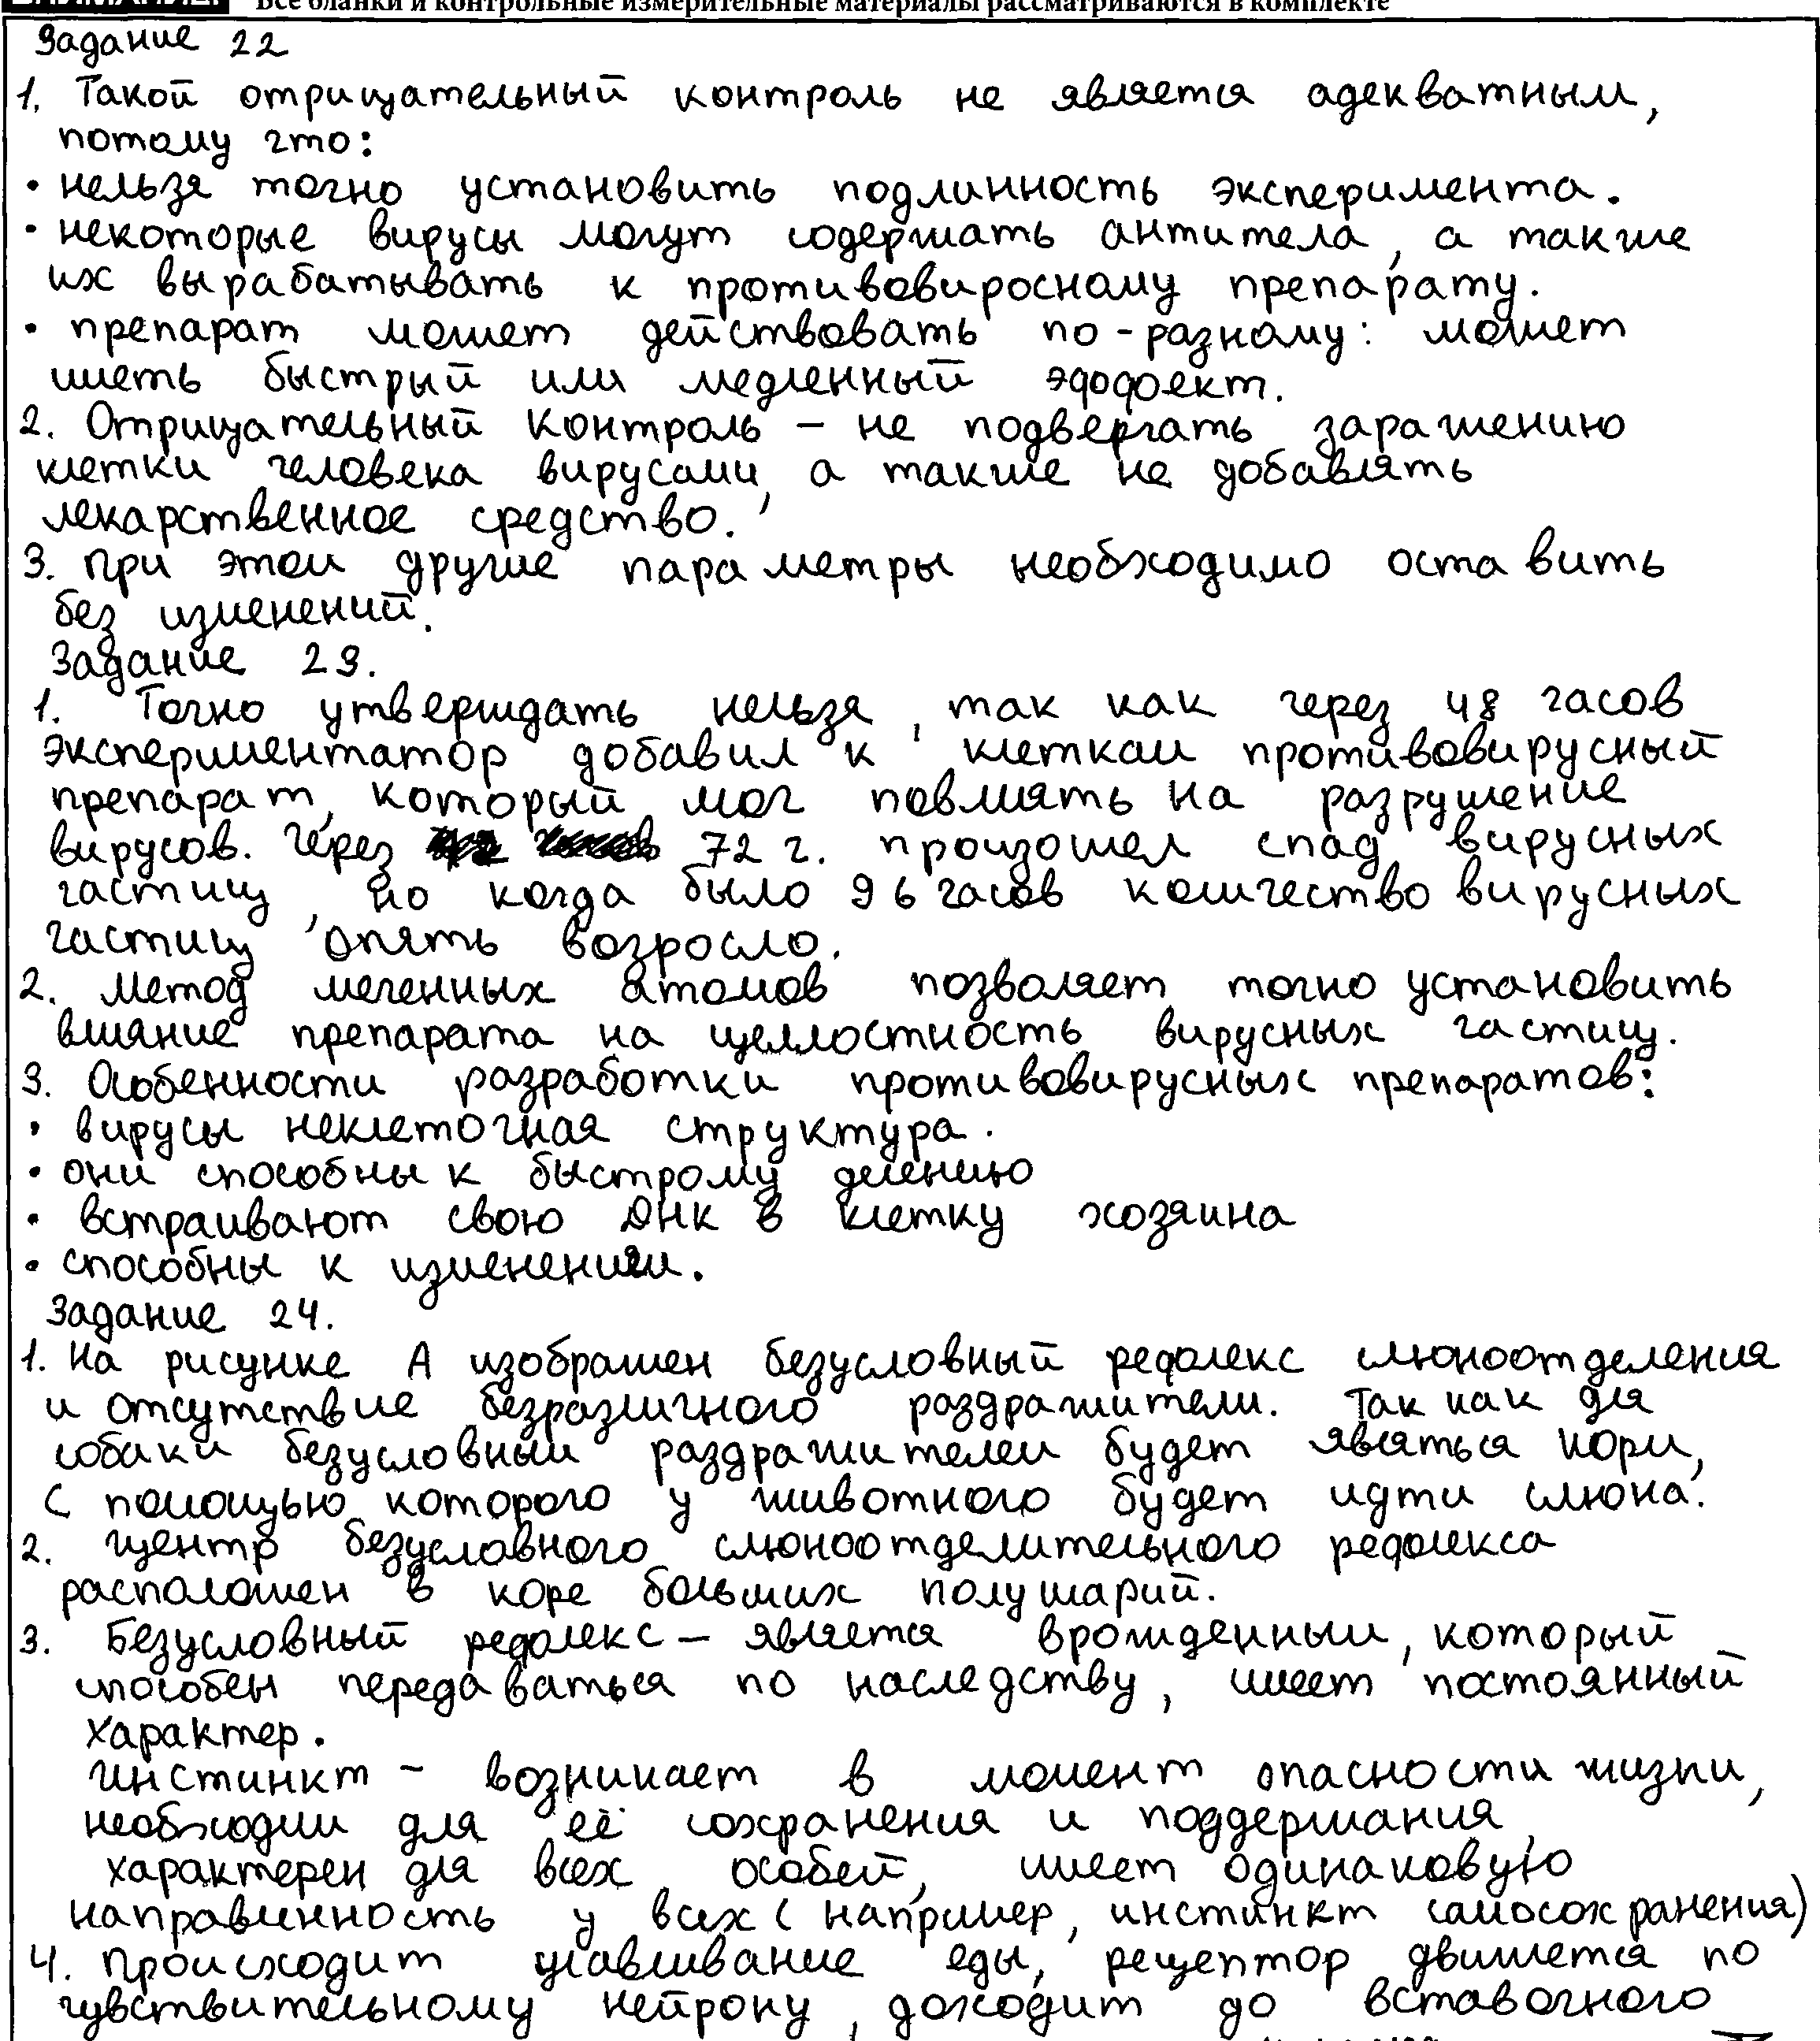 Все бланки и контрольные измерительные материалы рассматриваются в комплекте
Задание 22
1. Такой отрицательный контроль не является адекватным,
потому что:
• нельзя точно установить подлинность эксперимента.
• некоторые вирусы могут содержать антитела, а также
их вырабатывать к противовиросному препарату.
• препарат может действовать по-разному: может
иметь быстрый или медленный эффект.
2. Отрицательный контроль – не подвергать заражению
клетки человека вирусами, а также не добавлять
лекарственное средство.
3. При этом другие параметры необходимо оставить
без изменений.
Задание 23.
1. Точно утверждать нельзя, так как через 48 часов
экспериментатор добавил к клеткам противовирусный
препарат, который мог повлиять на разрушение
вирусов. Через 72 ч. произошел спад вирусных
частиц, но когда было 96 часов количество вирусных
частиц опять возросло.
2. Метод меченных атомов позволяет точно установить
влияние препарата на целлостность вирусных частиц.
3. Особенности разработки противовирусных препаратов:
• вирусы неклеточная структура.
• они способны к быстрому делению
• встраивают свою ДНК в клетку хозяина
• способны к изменениям.
Задание 24.
1. На рисунке А изображен безусловный рефлекс слюноотделения
и отсутствие безразличного раздражители. Так как для
собаки безусловным раздражителем будет являться корм,
с помощью которого у животного будет идти слюна.
2. Центр безусловного слюноотделительного рефлекса
расположен в коре больших полушарий.
3. Безусловный рефлекс – является врожденным, который
способен передаваться по наследству, имеет постоянный
характер.
Инстинкт – возникает в момент опасности жизни,
необходим для её сохранения и поддержания,
характерен для всех особей, имеет одинаковую
направленность у всех (например, инстинкт самосохранения)
4. Происходит улавливание еды, рецептор движется по
чувствительному нейрону, доходит до вставочного